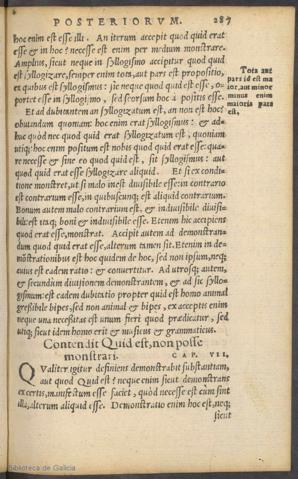 POSTERIORVM. 287
hoc enim est esse illi. An iterum accepit quod quid erat
esse & in hoc? necesse est enim per medium monstrare.
Amplius, sicut neque in syllogismo accipitur quod quid
est syllogizare, semper enim tota, aut pars est propositio,
ex quibus est syllogismus: sic neque quod quid est esse, o-
portet esse in syllogismo, sed seorsum hoc à positis esse.
Tota aut
pars id est ma
ior, aut minor
minus enim
maioris pars
est,
Et ad dubitantem an syllogizatum est, an non est hoc?
obuiandum quoniam: hoc enim erat syllogismus: & ad-
huc quòd nec quod quid erat syllogizatum est, quoniam
utiq; hoc enim positum est nobis quod quid erat esse: qua-
re necesse & sine eo quod quid est, sit syllogismus: aut
quod quid erat esse syllogizare aliquid. Et si ex condi-
tione monstret, ut si malo inest diuisibile esse: in contrario
est contrarium esse, in quibuscunq; est aliquid contrarium.
Bonum autem malo contrarium est, & indiuisibile diuisi-
bili: est itaq; boni & indiuisibile esse. Etenim hic accipiens
quod erat esse, monstrat. Accipit autem ad demonstran-
dum quod quid erat esse, alterum tamen sit. Etenim in de-
mōstrationibus est hoc quidem de hoc, sed non ipsum, neq;
cuius est eadem ratio: & conuertitur. Ad utrosq; autem,
& secundùm diuisionem demonstrantem, & ad sic syllo-
gismum: est eadem dubitatio propter quid est homo animal
gressibile bipes, sed non animal & bipes, ex acceptis enim
neque una necessitas est unum fieri quod prædicatur, sed
utiq; sicut idem homo erit & musicus & grammaticus.
Contendit Quid est, non posse
monstrari. CAP. VII,
QValiter igitur definiens demonstrabit substantiam,
aut quod Quid est? neque enim sicut demonstrans
ex certis, manifestum esse faciet, quòd necesse est cùm sint
illa, alterum aliquid esse. Demonstratio enim hoc est, neq;
sicut
Biblioteca de Galicia